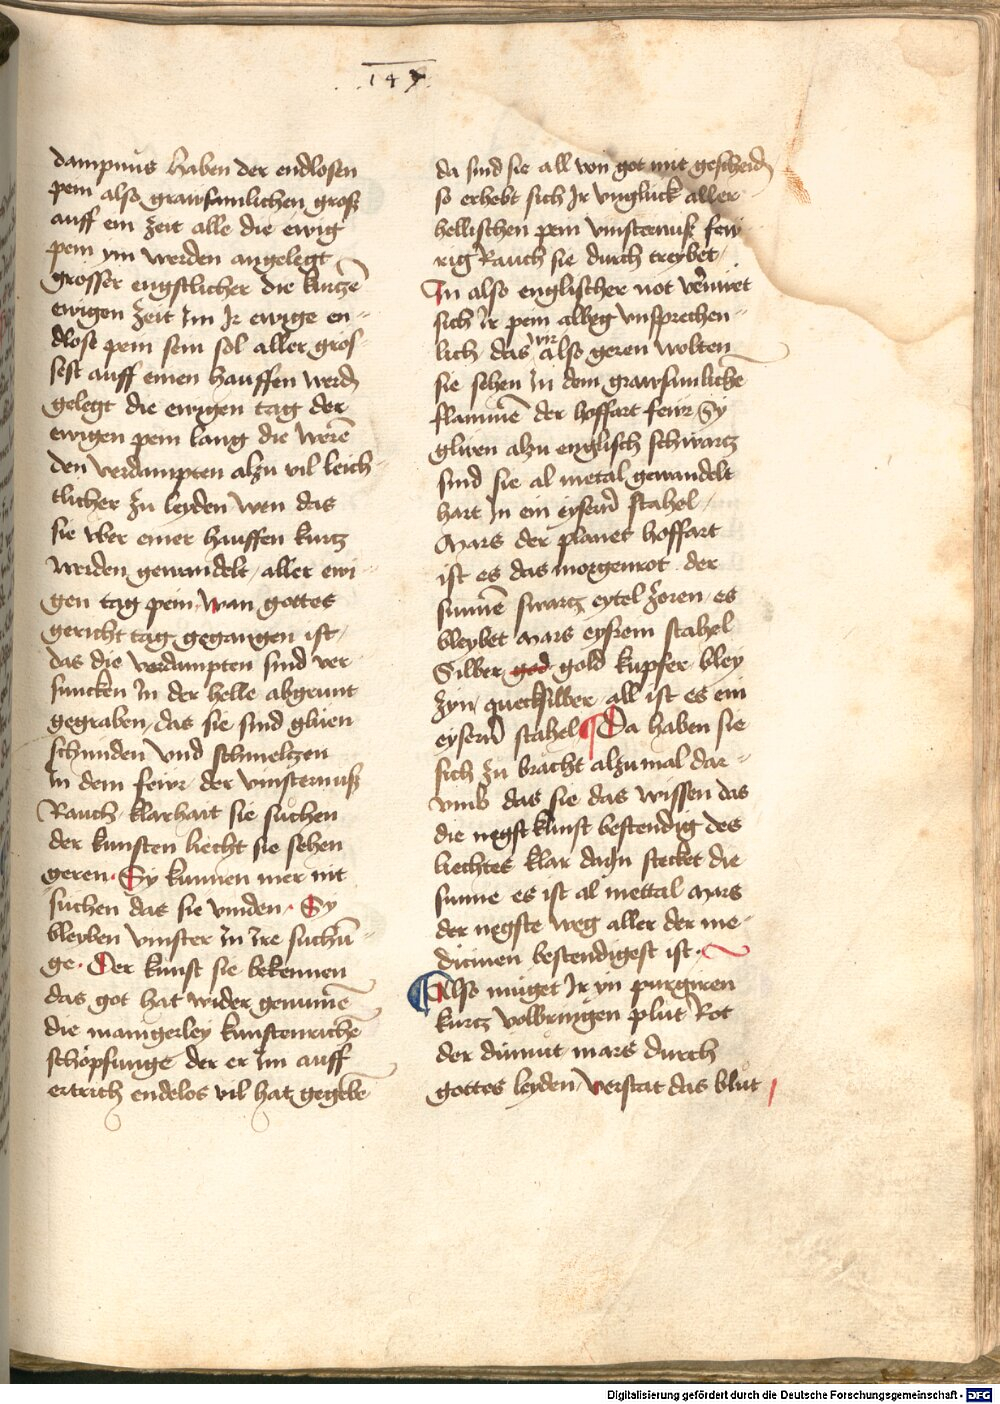 147
dampnüs haben der endlosen
pein also grausamlichen groß
auff ein zeit alle die ewig
pein ym werden angelegt
grösser engstlicher die kurcze
ewigen zeit Im Ir ewige en-
dlose pein sein sol aller grös-
sest auff einen hauffen werd
gelegt die ewigen tag der
ewigen pein lang die weren
den verdampten alzu vil leich-
tlicher zu leyden wen das
sie vber einer hauffen kurcz
werden gewandelt / aller ewi-
gen tag pein / wan gottes
gericht tag gegangen ist /
das die verdampten sind ver-
suncken In der helle abgrunt
gegraben / das sie sind glüen
schinden vnd schmelczen
In dem fewr der vinsternuß
Rauch / klarhait sie suchen
der kunsten liecht sie sehen
geren · Sy kunnen mer nit
suchen das sie vinden · Sy
bleyben vinster In Ire suchu-
ge · Der kunst sie bekennen
das got hat wider genumen
die manigerley kunstenrichen
schöpfunge der er Im auff
ertrich endelos vil hat gegeben
da sind sie all von got mit gescheid
so erhebt sich Ir vnglück aller
hellischen pein vinsternuß few
rig Rauch sie durch treybet /
In also englischer not verniret
sich Ir pein allweg vnsprechen-
lich das wir also geren wolten
sie sehen In dem grawsamlichen
flammen der hoffart fewr / Sy
glüen alzu englisch schwartz
sind sie al metal gewandelt
hart In ein eysern stahel /
Mars der planet hoffart
ist es das morgenrot der
sunnen swartz eytel zoren / es
bleybet Mars eysrem stahel
Silber god gold kupfer bley
zyn / quecksilber / all ist es ein
eysern stahel ¶ Da haben sie
sich zu bracht alzumal dar-
vmb das sie das wissen das
die negst kunst bestendig des
liechtes klar dayn stecket die
sunne es ist al mettal Mars
der negste weg aller der me-
dicinen bestendigest ist ·
Also müget Ir yn purgiren
kurcz volbringen plut Rot
der diemut mars durch
gottes leyden / verstat das blut
Digitalisierung gefördert durch die Deutsche Forschungsgemeinschaft - DFG